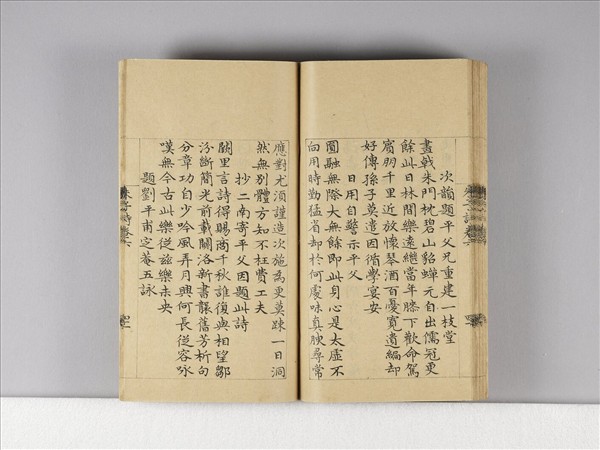 次韻題平父兄重建一枝堂
畫戟朱門枕碧山貂蟬元自出儒冠更
餘此日林間樂遠繼當年膝下歡命駕
賔朋千里近放懷琴酒百憂寬遺編却
好傳孫子莫遣因循學宴安
日用自警示平父
圓融無際大無餘即此身心是太虛不
向用時勤猛省却於何處味真腴尋常
應對尤須謹造次施為更莫踈一日洞
然無別體方知不枉費工夫
抄二南寄平父因題此詩
闕里言詩得賜商千秋誰復與相望鄒
汾斷簡光前載關洛新書襲舊芳析句
分章功自少吟風弄月興何長從容咏
嘆無今古此樂從茲樂未央
題劉平甫定菴五詠
朱子詩卷六